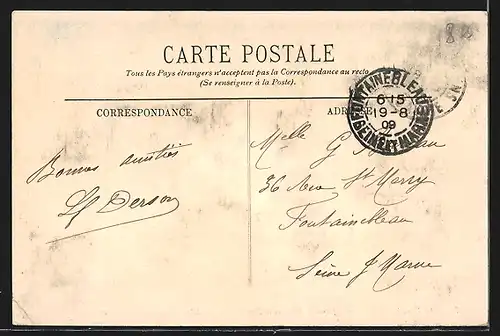 CARTE POSTALE
Tous les Pays étrangers n'acceptent pas la Correspondance au recto
(Se renseigner à la Poste).
CORRESPONDANCE
Bonnes amitiés
FONTAINEBLEAU
6 15
19-8
09
SEINE ET MARNE
Melle G
36 Rue St Merry
Fontainebleau
Seine & Marne